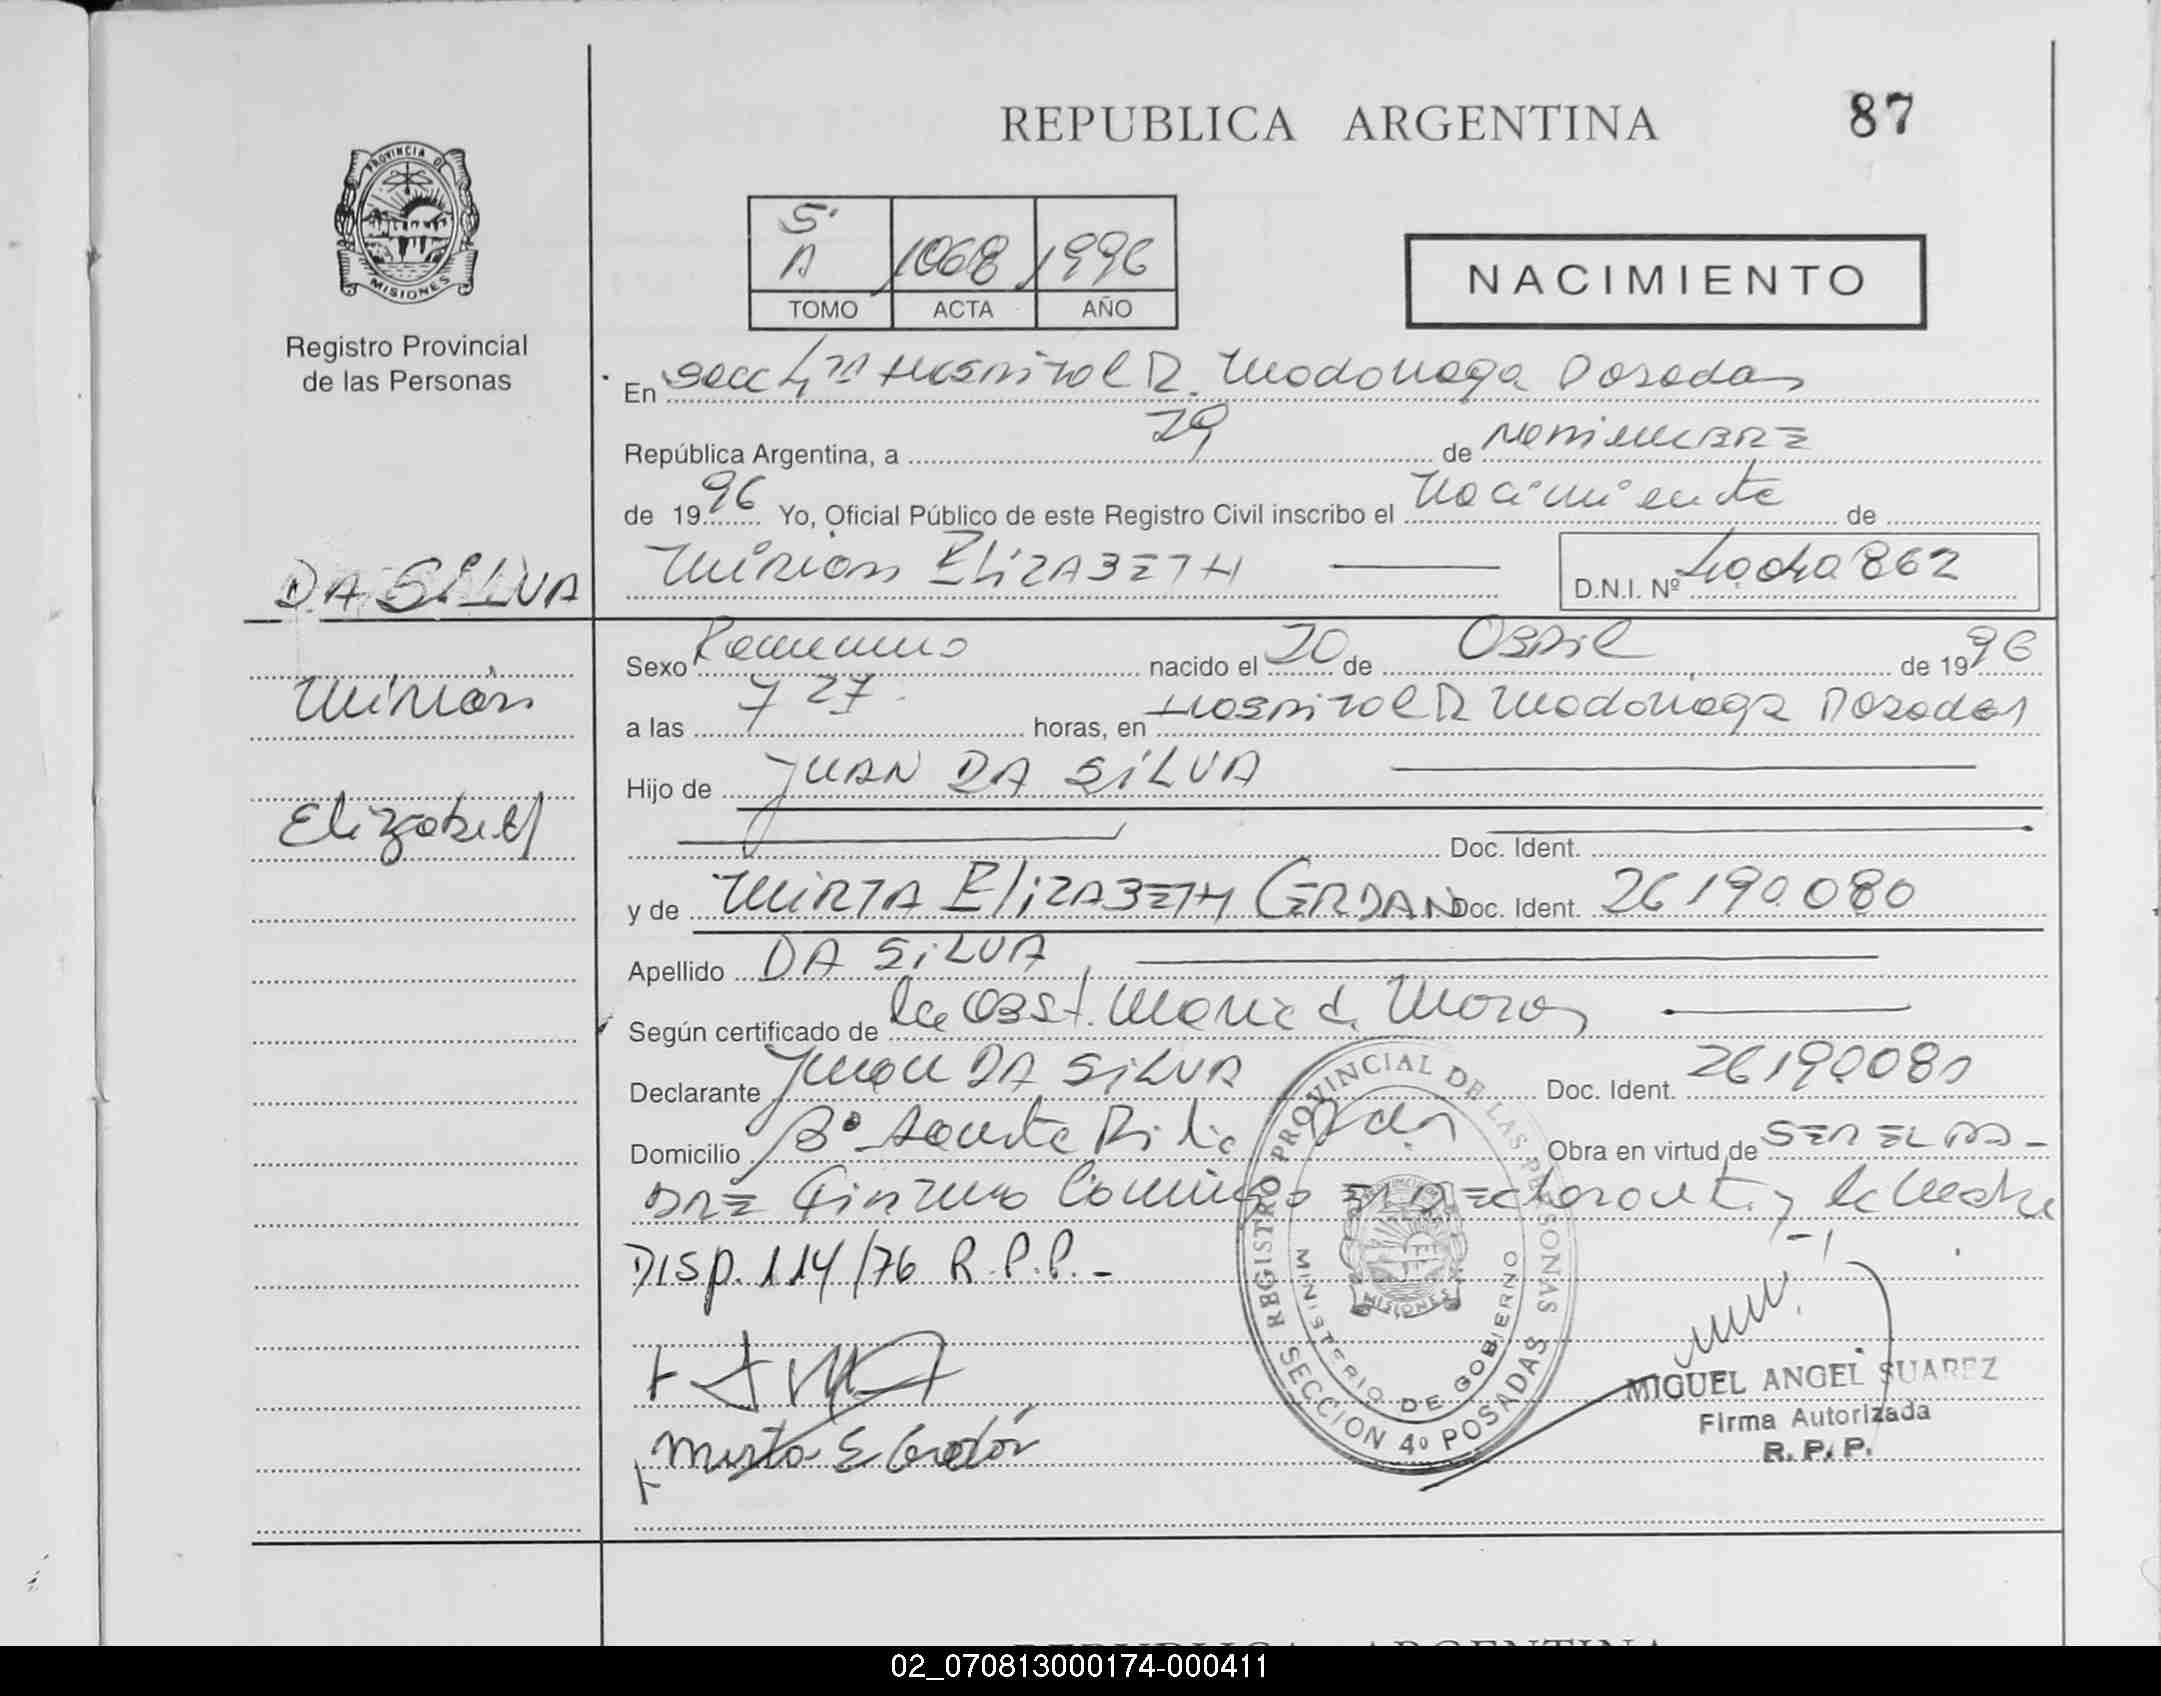 REPUBLICA ARGENTINA
87
PROVINCIA DE
MISIONES
Registro Provincial
de las Personas
5º
A
1068
1996
TOMO
ACTA
AÑO
NACIMIENTO
En Secc 4ta Hospital R. Madariaga Posadas
República Argentina, a 29 de Noviembre
de 1996 Yo, Oficial Público de este Registro Civil inscribo el Nacimiento de
Mirian Elizabeth
D.N.I. Nº 40040862
DA SILVA
Mirian
Elizabeth
Sexo Femenino nacido el 20 de Abril de 1996
a las 7 27 horas, en Hospital R Madariaga Posadas
Hijo de JUAN DA SILVA
Doc. Ident.
y de MIRTA Elizabeth CERDAN Doc. Ident. 26190.080
Apellido DA SILVA
Según certificado de la Obst. Maria
Declarante Juan DA SILVA Doc. Ident. 26190080
Domicilio Bº Santa Rita Pdas Obra en virtud de ser el pa-
dre y la madre
DISP. 114/76 R.P.P.-
Mirta E Cerdán
REGISTRO PROVINCIAL DE LAS PERSONAS
MINISTERIO DE GOBIERNO
MISIONES
SECCION 4º POSADAS
MIGUEL ANGEL SUAREZ
Firma Autorizada
R. P. P.
REPUBLICA ARGENTINA
02_070813000174-000411